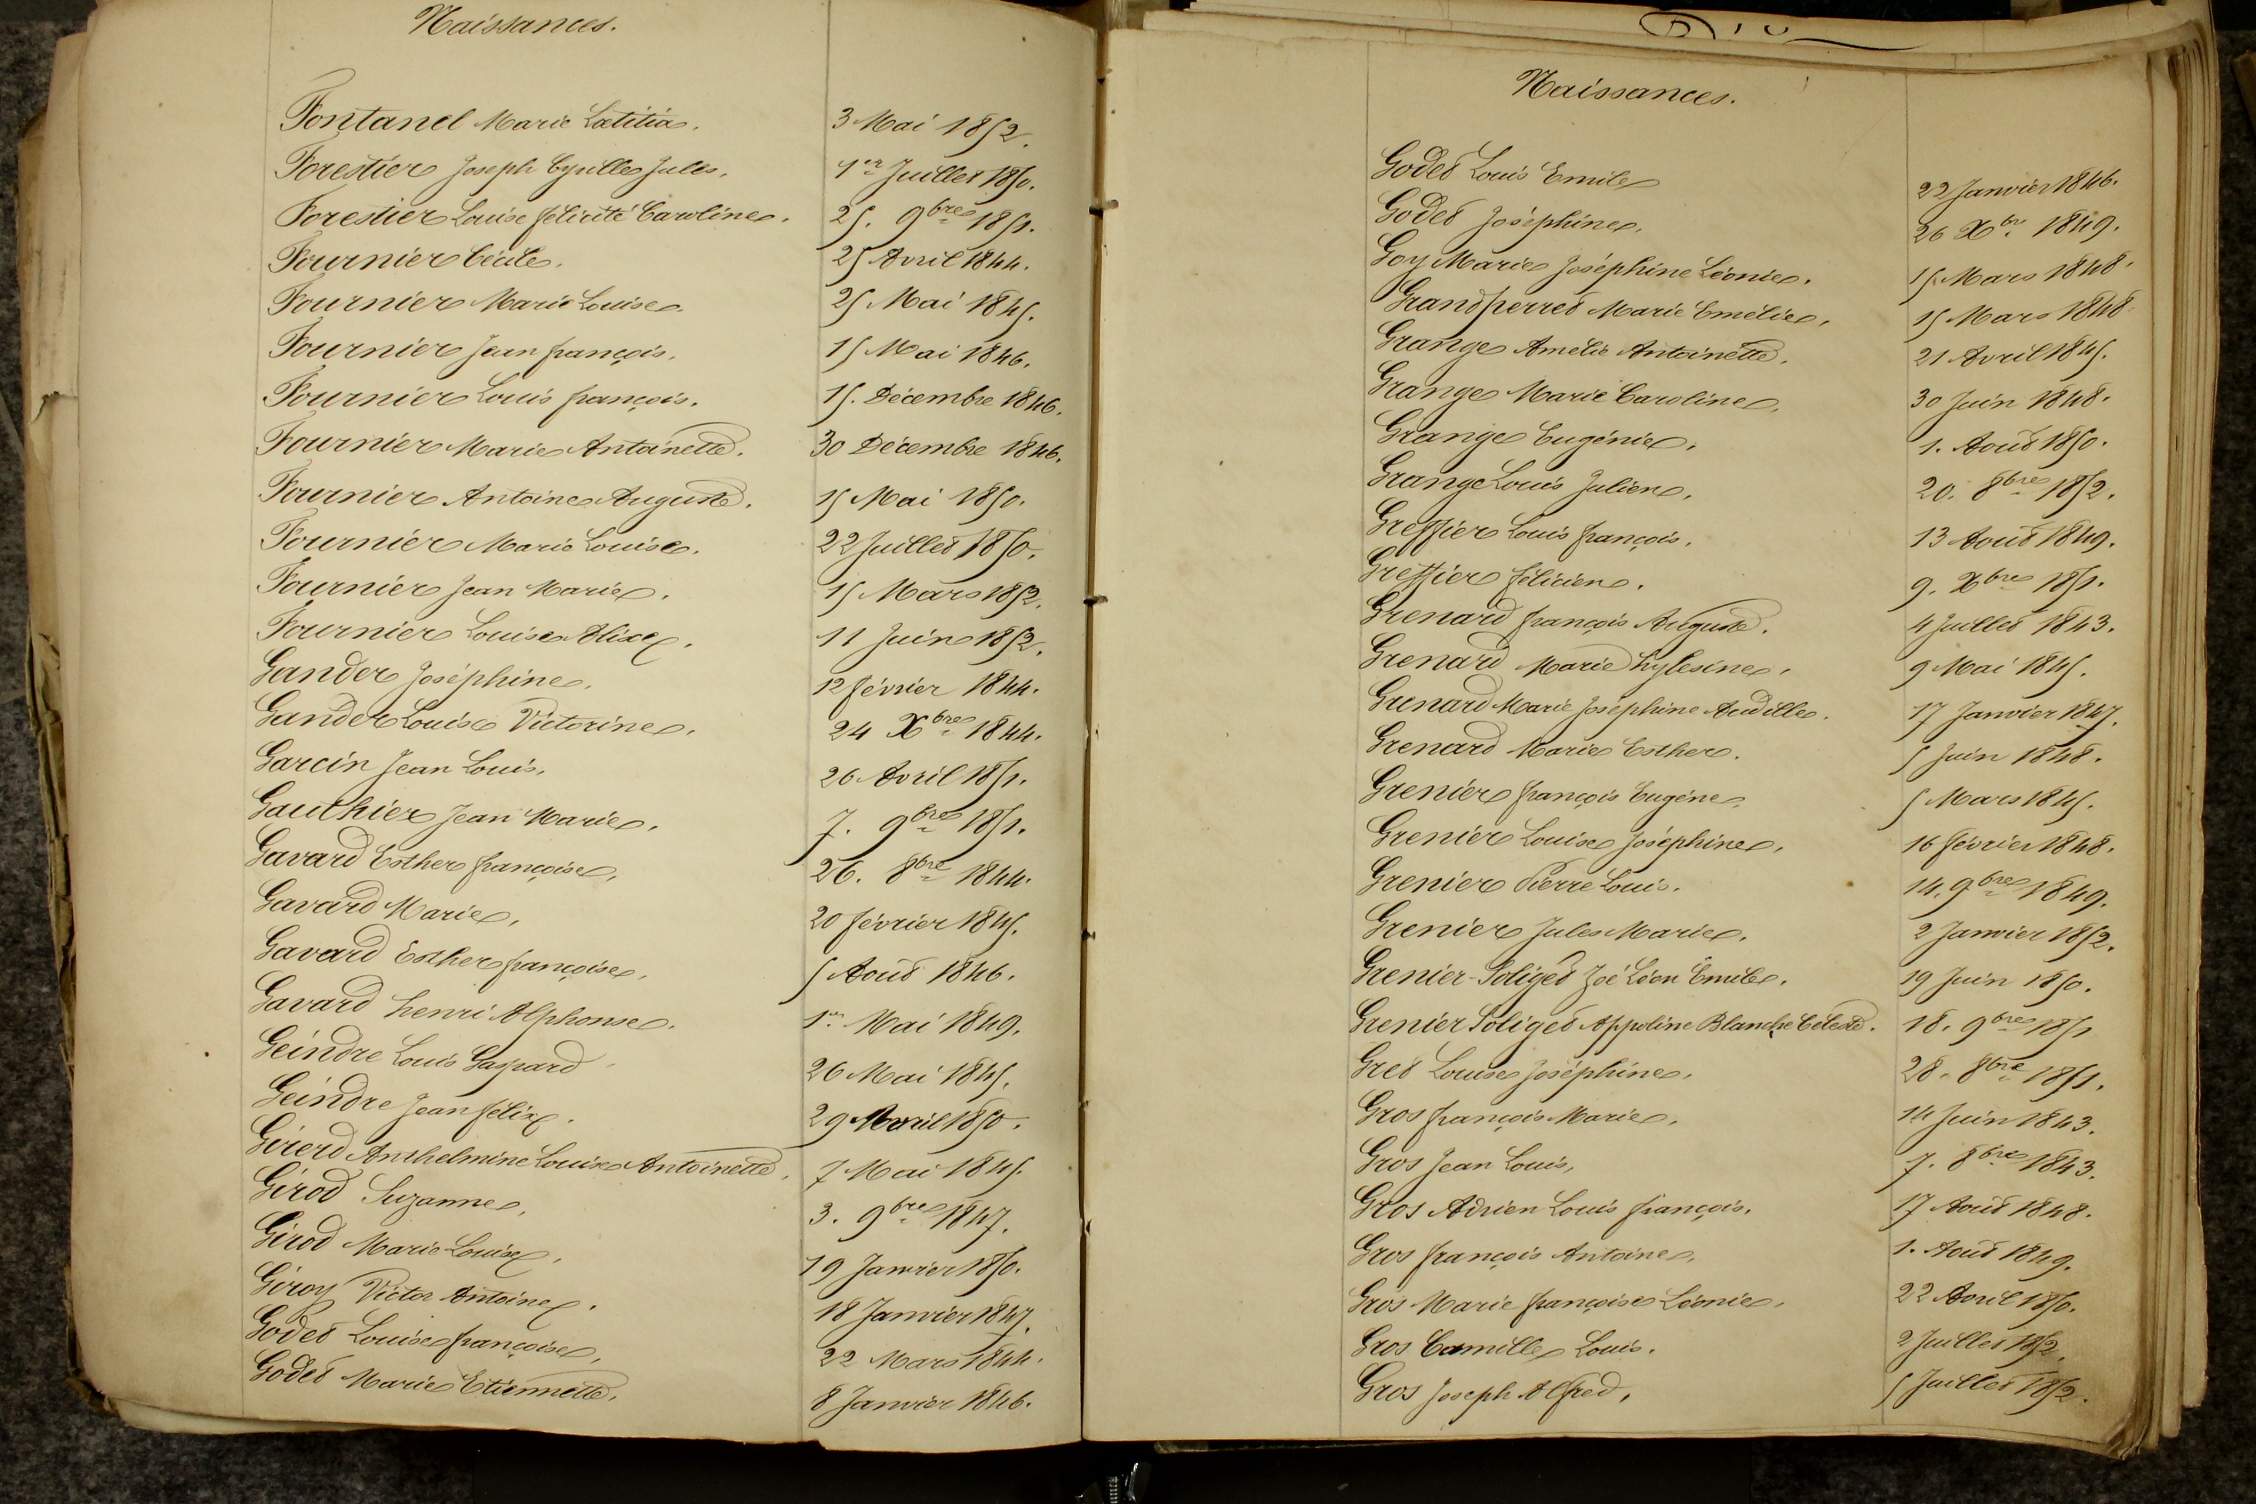 Naissances.
Fontanel Marie Lætitia. 3 Mai 1852.
Forestier Joseph Cyrille Jules. 1er Juillet 1850.
Forestier Louise félicité Caroline. 25. 9bre 1851.
Fournier Cécile. 25 Avril 1844.
Fournier Marie Louise. 25 Mai 1845.
Fournier Jean françois. 15 Mai 1846.
Fournier Louis françois. 15. Décembre 1846.
Fournier Marie Antoinette. 30 Décembre 1846.
Fournier Antoine Auguste. 15 Mai 1850.
Fournier Marie Louise. 22 Juillet 1850.
Fournier Jean Marie. 15 Mars 1852.
Fournier Louise Alix. 11 Juin 1852.
Gander Joséphine. 12 février 1844.
Gander Louise Victorine. 24 Xbre 1844.
Garcin Jean Louis. 26 Avril 1851.
Gauthier Jean Marie. 7. 9bre 1851.
Gavard Esther françoise. 26. 8bre 1844.
Gavard Marie. 20 février 1845.
Gavard Esther françoise. 5 Août 1846.
Gavard henri Alphonse. 1er Mai 1849.
Geindre Louis Gaspard 26 Mai 1845.
Geindre Jean félix. 29 Avril 1850.
Girerd Anthelmine Louise Antoinette. 7 Mai 1845.
Girod Suzanne. 3. 9bre 1847.
Girod Marie Louise. 19 Janvier 1850.
Giroy Victor Antoine. 18 Janvier 1847.
Godet Louise françoise. 22 Mars 1844.
Godet Marie Etiennette. 8 Janvier 1846.
Naissances.
Godet Louis Emile 22 Janvier 1846.
Godet Joséphine. 26 Xbre 1849.
Goy Marie Joséphine Léonie. 15 Mars 1848.
Grandperret Marie Emélie. 15 Mars 1848.
Grange Amélie Antoinette. 21 Avril 1845.
Grange Marie Caroline. 30 Juin 1848.
Grange Eugénie. 1. Août 1850.
Grange Louis Julien. 20. 8bre 1852.
Greffier Louis françois. 13 Août 1849.
Greffier félicien. 9. Xbre 1851.
Grenard françois Auguste. 4 Juillet 1843.
Grenard Marie 9 Mai 1845.
Grenard Marie Joséphine 17 Janvier 1847.
Grenard Marie Esther. 5 Juin 1848.
Grenier françois Eugène. 5 Mars 1845.
Grenier Louise Joséphine. 16 février 1848.
Grenier Pierre Louis. 14. 9bre 1849.
Grenier Jules Marie. 2 Janvier 1852.
Grenier-Soliget Zoé Léon Emile. 19 Juin 1850.
Grenier Soliget Appoline Blanche Céleste. 18. 9bre 1851
Gret Louise Joséphine. 28. 8bre 1851.
Gros françois Marie. 14 Juin 1843.
Gros Jean Louis, 7. 8bre 1843.
Gros Adrien Louis françois. 17 Août 1848.
Gros françois Antoine. 1. Août 1849.
Gros Marie françoise Léonie. 22 Avril 1850.
Gros Camille Louis. 2 Juillet 1852.
Gros Joseph Alfred. 5 Juillet 1852.